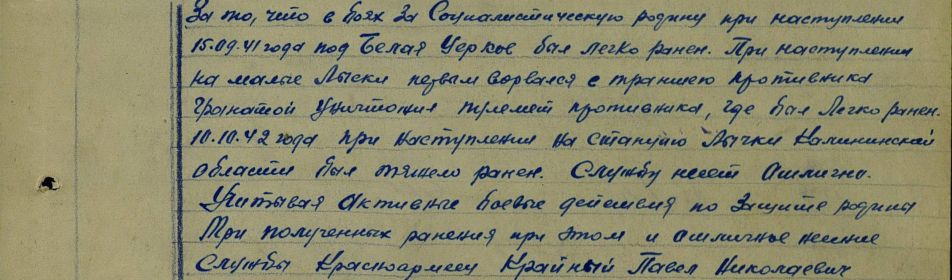 За то, что в боях за Социалистическую родину при наступлении
15.09.41 года под Белая Церковь был легко ранен. При наступлении
на малые Лыски первым ворвался в траншею противника
гранатой уничтожил пулемёт противника, где был легко ранен.
10.10.42 года при наступлении на станцию Лычки Калининской
области был тяжело ранен. Службу несёт отлично.
Учитывая активные боевые действия по защите родины
Три полученных ранения при этом и отличное несение
службы Красноармеец Крайный Павел Николаевич